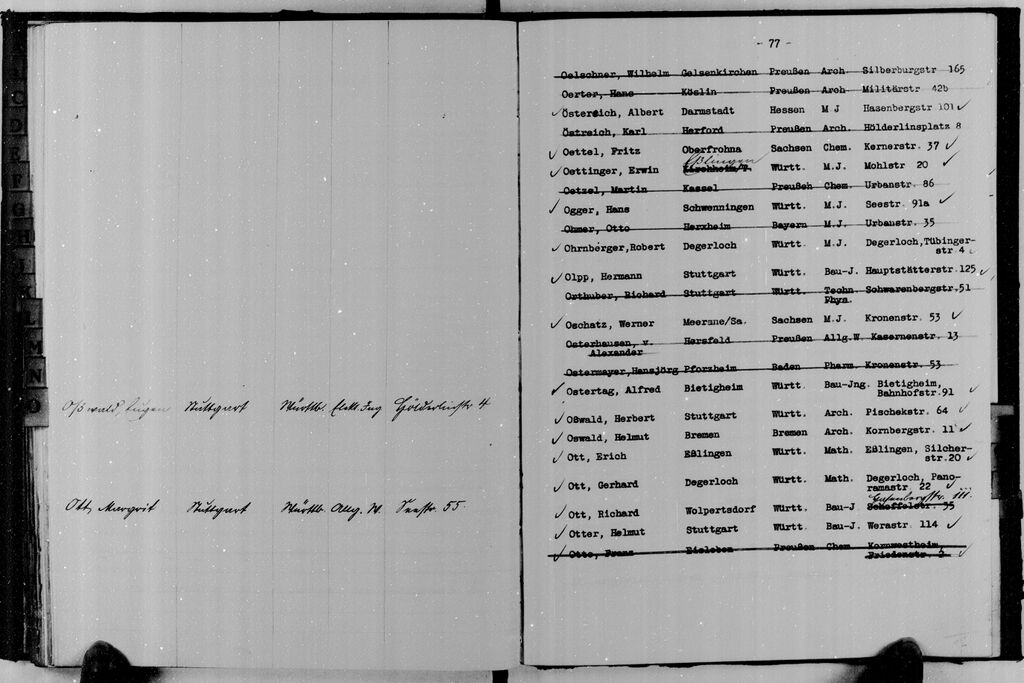 C
D
F
G
H
I
L
M
N
O
Oßwald, Eugen Stuttgart Württb. Elekt. Ing Hölderlinstr 4
Ott Margrit Stuttgart Württb. Allg. W. Seestr. 55.
- 77 -
Oelschner, Wilhelm Gelsenkirchen Preußen Arch. Silberburgstr 165
Oerter, Hans Köslin Preußen Arch Militärstr 42b
✓ Östereich, Albert Darmstadt Hessen M J Hasenbergstr 101 ✓
Östreich, Karl Herford Preußen Arch. Hölderlinsplatz 8
✓ Oettel, Fritz Oberfrohna Sachsen Chem. Kernerstr. 37 ✓
Eßlingen
✓ Oettinger, Erwin Kirchheim/T. Württ. M.J. Mohlstr 20 ✓
Oetzel, Martin Kassel Preußen Chem. Urbanstr. 86
✓ Ogger, Hans Schwenningen Württ. M.J. Seestr. 91a ✓
Ohmer, Otto Herxheim Bayern M.J. Urbanstr. 35
✓ Ohrnberger,Robert Degerloch Württ. M.J. Degerloch,Tübinger-
str 4 ✓
✓ Olpp, Hermann Stuttgart Württ. Bau-J. Hauptstätterstr.125 ✓
Orthuber, Richard Stuttgart Württ. Techn Schwarenbergstr.51
Phys.
✓ Oschatz, Werner Meerane/Sa. Sachsen M.J. Kronenstr. 53 ✓
Osterhausen, v. Hersfeld Preußen Allg.W. Kasernenstr. 13
Alexander
Ostermayer,Hansjörg Pforzheim Baden Pharm. Kronenstr. 53
✓ Ostertag, Alfred Bietigheim Württ. Bau-Jng. Bietigheim,
Bahnhofstr.91 ✓
✓ Oßwald, Herbert Stuttgart Württ. Arch. Pischekstr. 64 ✓
✓ Oswald, Helmut Bremen Bremen Arch. Kornbergstr. 11 ✓
✓ Ott, Erich Eßlingen Württ. Math. Eßlingen, Silcher-
str.20 ✓
✓ Ott, Gerhard Degerloch Württ. Math. Degerloch, Pano-
ramastr. 22 ✓
✓ Ott, Richard Wolpertsdorf Württ. Bau-J Scheffelstr. 35
✓ Otter, Helmut Stuttgart Württ. Bau-J. Werastr. 114 ✓
✓ Otto, Franz Eisleben Preußen Chem Kornwestheim,
Friedenstr. 5 ✓